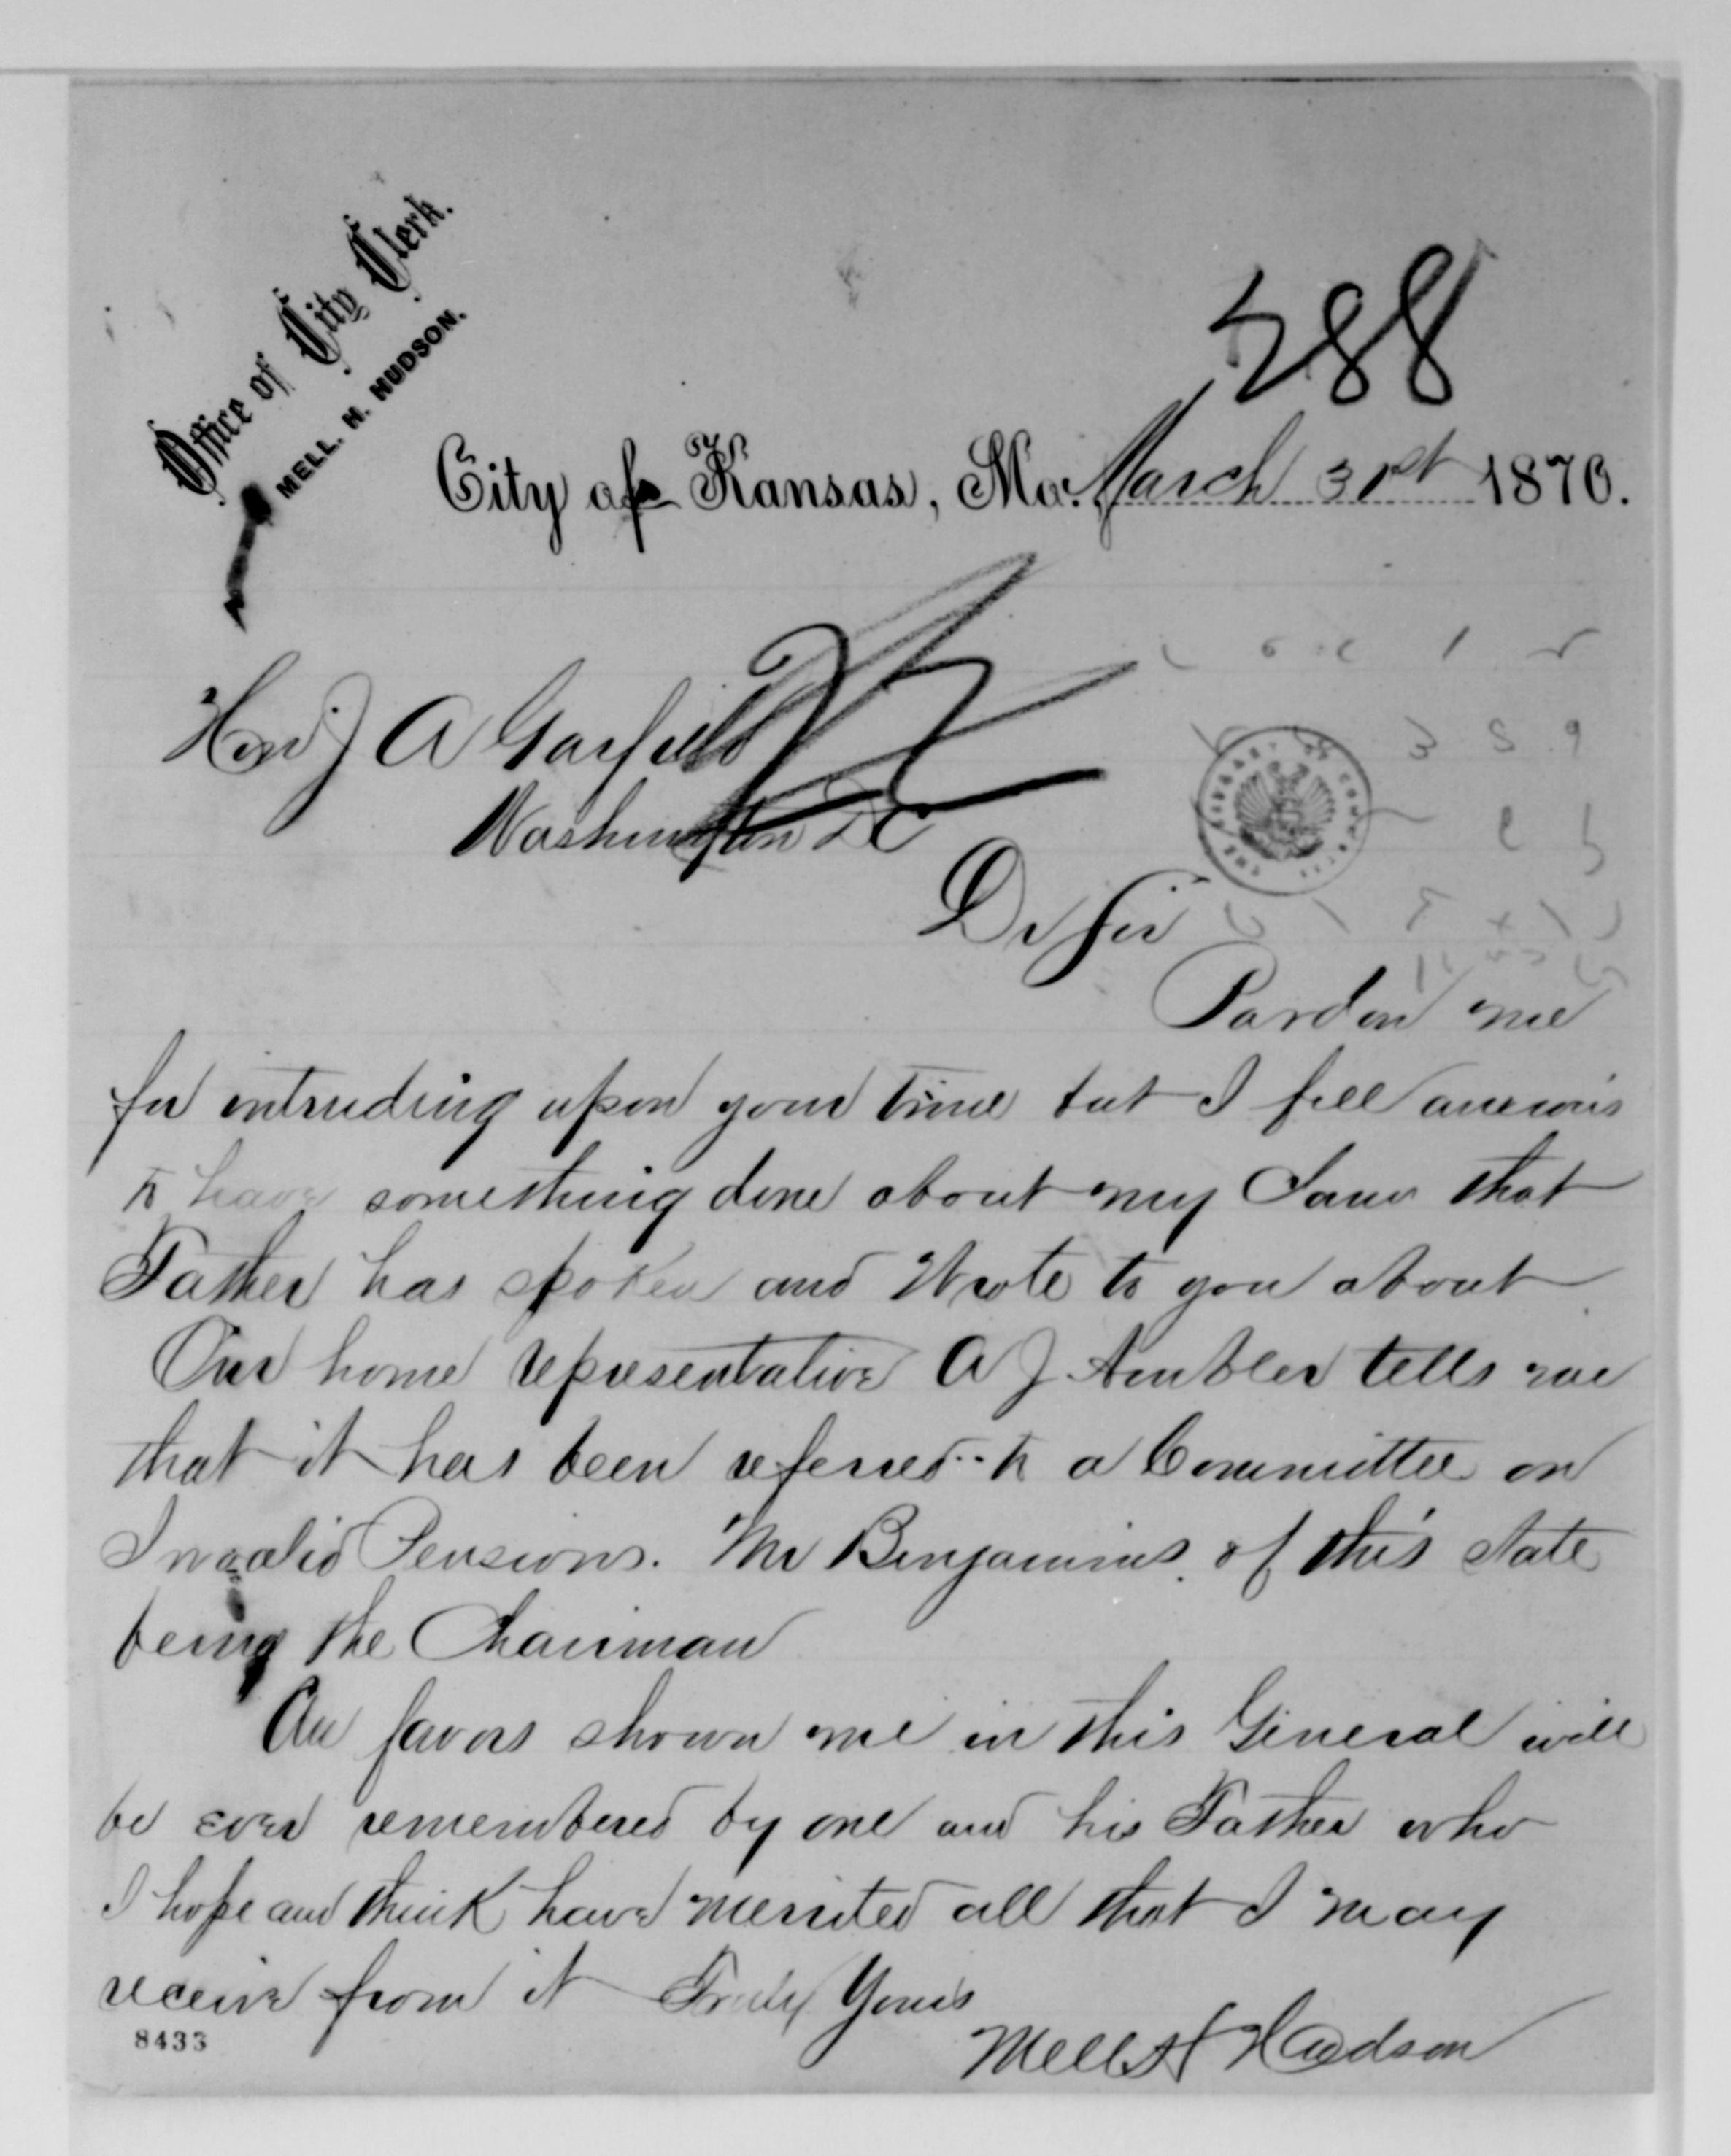 Office of City Clerk.
MELL. H. HUDSON.
288
City of Kansas, Mo. March 31st 1870.
Hon J A Garfield
Washington DC
Dr Sir
Pardon me
for intruding upon your time but I feel anxious
to have something done about my that
Father has spoken and Wrote to you about
Our home representative A J Ambler tells me
that it has been referred to a Committee on
Invalid Pensions. Mr Benjamins of this state
being the Chairman
favors shown me in this General will
be ever remembered by one and his Father who
I hope and think have merrited all that I may
receive from it Truly Yours
Mell H Hudson
8433